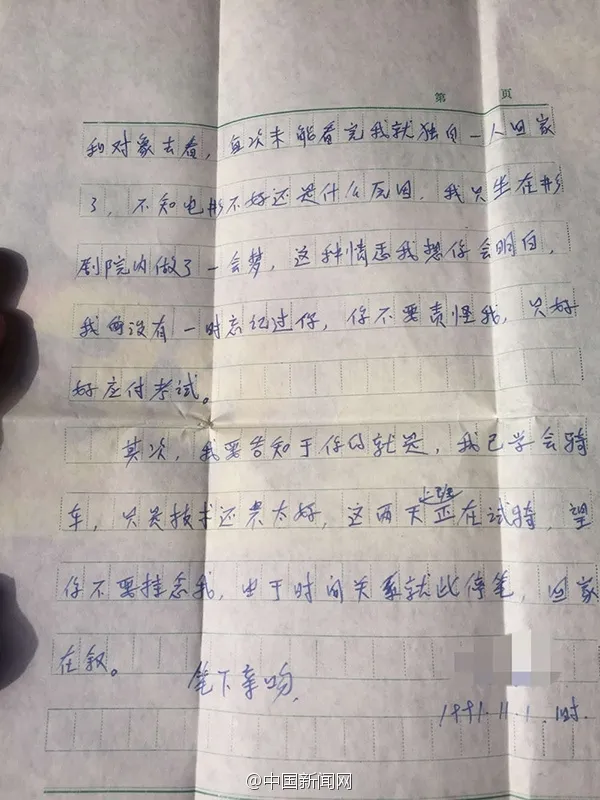 第 页
和对象去看，每次未能看完我就独自一人回家
了，不知电影不好还是什么原因，我只坐在影
剧院内做了一会梦，这种情悉我想你会明白，
我每没有一时忘记过你，你不要责怪我，只好
好应付考试。
其次，我要告知于你的就是，我已学会骑
车，只是技术还是太好，这两天正在试骑，望
你不要挂悉我，由于时间关系就此停笔，回家
在叙。
笔下亲吻，
1991.11.1. 1时.
@中国新闻网